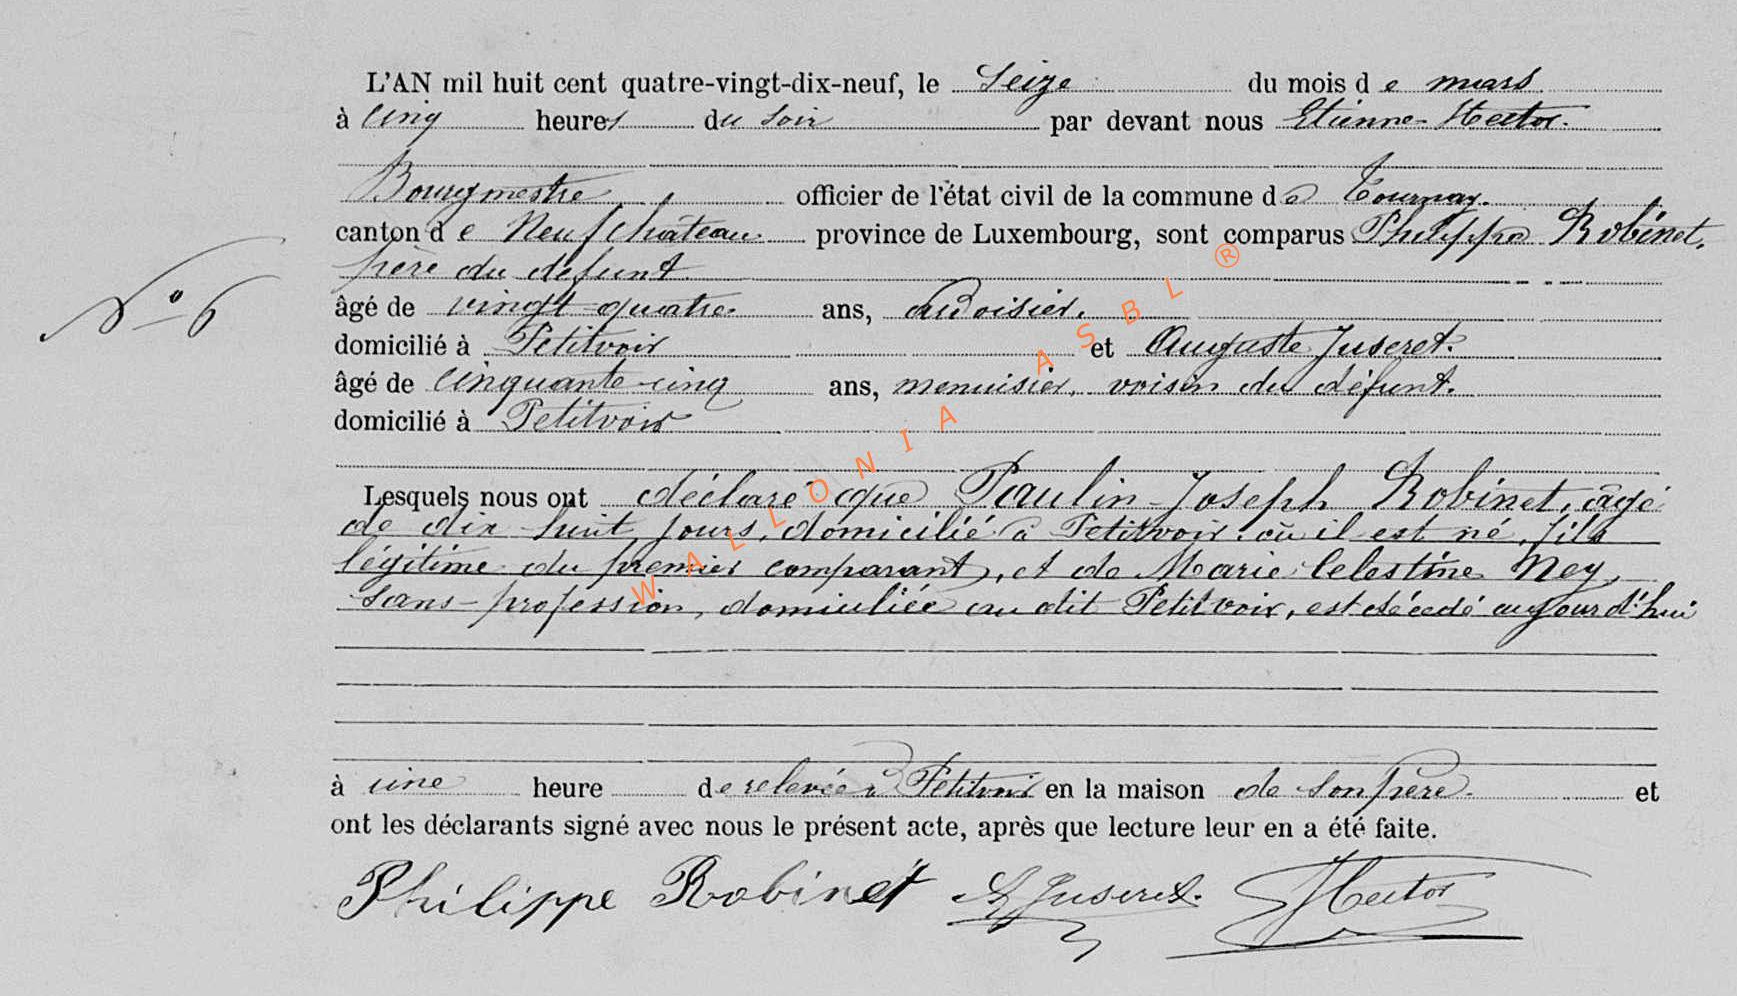 L'AN mil huit cent quatre-vingt-dix-neuf, le Seize du mois de mars
à cinq heures du soir par devant nous Etienne Hector.
Bourgmestre officier de l'état civil de la commune de Tournay.
canton de Neufchâteau province de Luxembourg, sont comparus Philippe Robinet,
père du défunt
N° 6
âgé de vingt-quatre ans, ardoisier,
domicilié à Petitvoir et Auguste Juseret.
âgé de cinquante-cinq ans, menuisier, voisin du défunt.
domicilié à Petitvoir
Lesquels nous ont déclaré que Paulin-Joseph Robinet, âgé
de dix-huit jours, domicilié à Petitvoir où il est né, fils
légitime du premier comparant, et de Marie Celestine Ney,
sans-profession, domiciliée au dit Petitvoir, est décédé aujourd'hui
à une heure de relevée à Petitvoir en la maison de son père. et
ont les déclarants signé avec nous le présent acte, après que lecture leur en a été faite.
Philippe Robinet A Juseret. Hector
WALLONIA ASBL ®